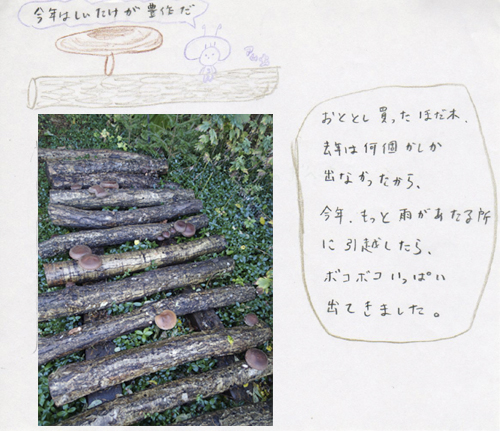 今年はしいたけが豊作だ
おととし買ったほだ木、
去年は何個かしか
出なかったから、
今年、もっと雨があたる所
に引越したら、
ボコボコいっぱい
出てきました。